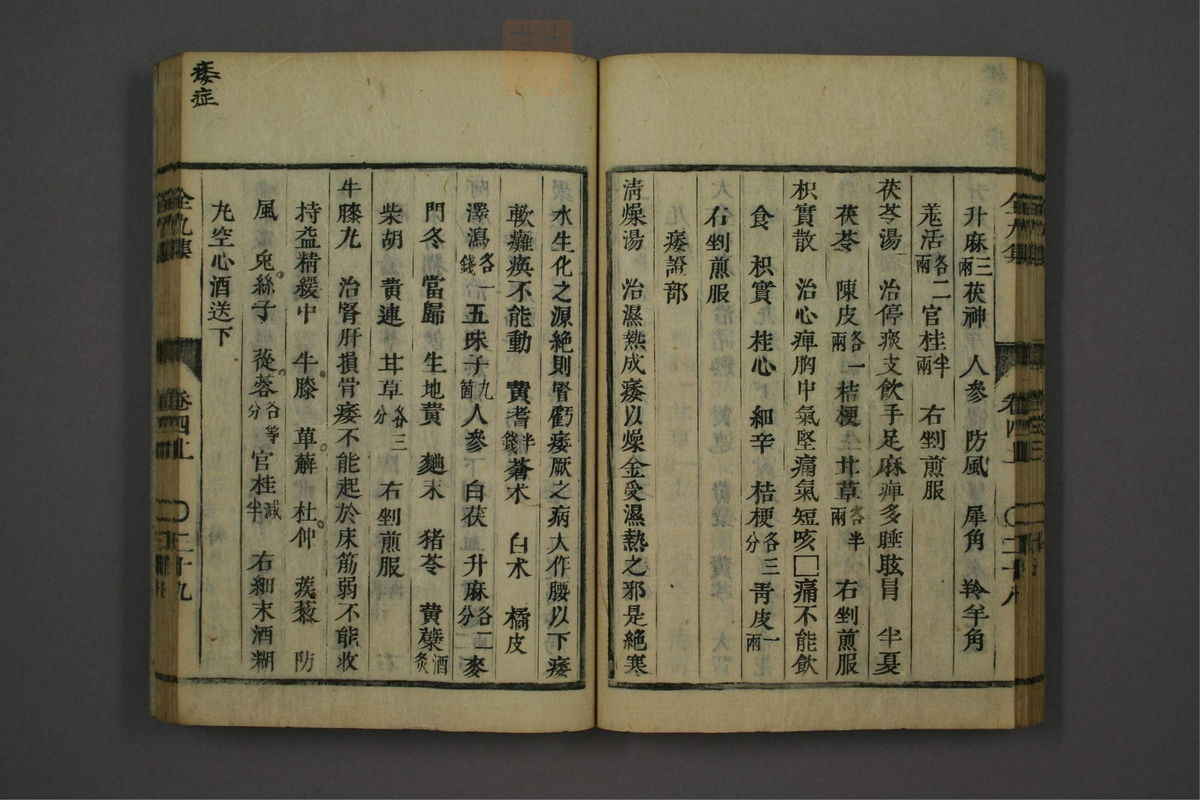 升麻三兩茯神　人參　防風　犀角　羚羊角
羗活各二兩官桂半兩　右剉煎服
茯苓湯　治停痰支飲手足麻痺多睡眩冒　半夏
茯苓　陳皮各一兩桔梗　甘草各半兩　右剉煎服
枳實散　治心痺胸中氣堅痛氣短咳□痛不能飲
食　枳實　桂心　細辛　桔梗各三分靑皮一兩
右剉煎服
九　痿證部
淸燥湯　治濕熱成痿以燥金受濕熱之邪是絕寒
水生化之源絕則腎虧痿厥之病大作腰以下痿
軟癱瘓不能動　黃耆半錢蒼朮　白朮　橘皮
澤瀉各一錢五味子九箇人參　白茯　升麻各二分麥
門冬　當歸　生地黃　麯末　猪苓　黃蘗酒炙
柴胡　黃連　甘草各三分　右剉煎服
牛膝丸　治腎肝損骨痿不能起於床筋弱不能收
持益精緩中　牛膝　萆薢　杜仲　蒺藜　防
風　兎絲子　從蓉各等分官桂減半　右細末酒糊
丸空心酒送下
痿症
全九集
卷四上
〇二十八
全九集
卷四上
〇二十九